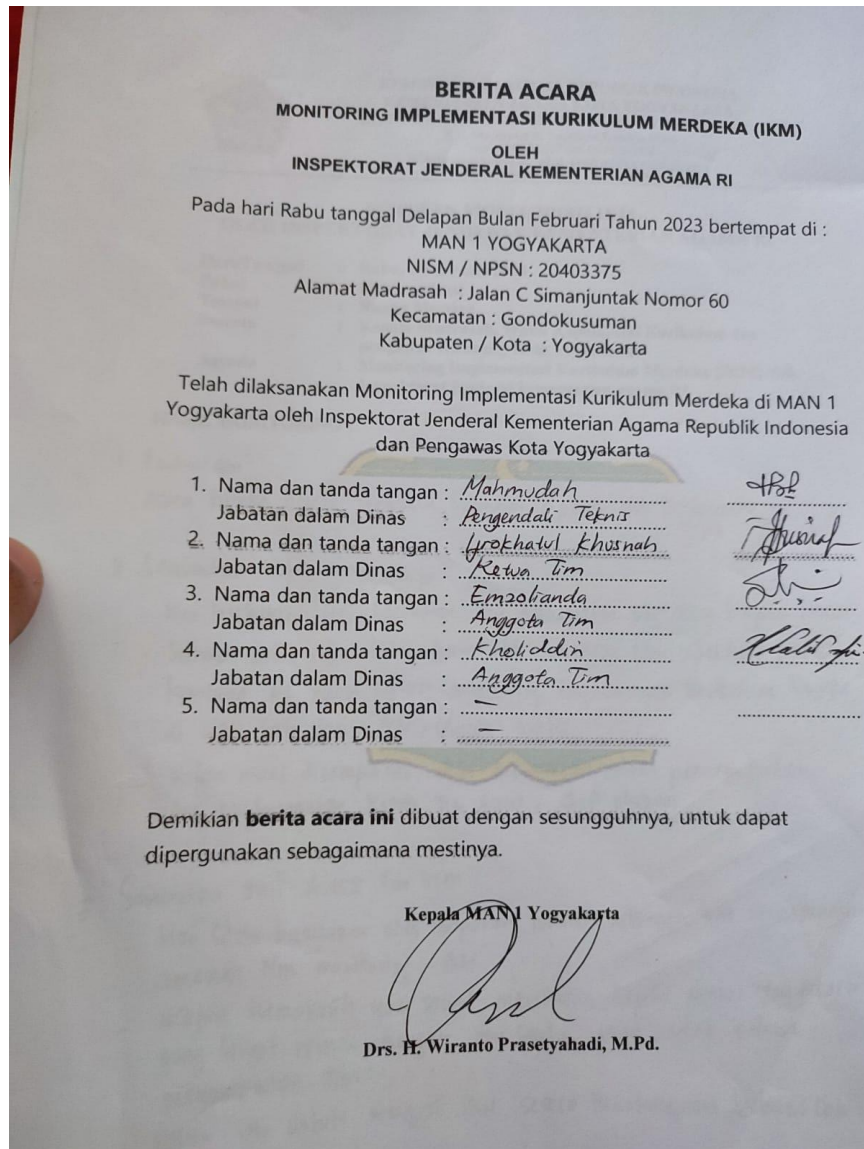 BERITA ACARA
MONITORING IMPLEMENTASI KURIKULUM MERDEKA (IKM)
OLEH
INSPEKTORAT JENDERAL KEMENTERIAN AGAMA RI
Pada hari Rabu tanggal Delapan Bulan Februari Tahun 2023 bertempat di :
MAN 1 YOGYAKARTA
NISM / NPSN : 20403375
Alamat Madrasah : Jalan C Simanjuntak Nomor 60
Kecamatan : Gondokusuman
Kabupaten / Kota : Yogyakarta
Telah dilaksanakan Monitoring Implementasi Kurikulum Merdeka di MAN 1
Yogyakarta oleh Inspektorat Jenderal Kementerian Agama Republik Indonesia
dan Pengawas Kota Yogyakarta
1. Nama dan tanda tangan : Mahmudah
Jabatan dalam Dinas : Pengendali Teknis
2. Nama dan tanda tangan : Khusnah
Jabatan dalam Dinas : Ketua Tim
3. Nama dan tanda tangan : Emzolianda
Jabatan dalam Dinas : Anggota Tim
4. Nama dan tanda tangan : Kholiddin
Jabatan dalam Dinas : Anggota Tim
5. Nama dan tanda tangan : —
Jabatan dalam Dinas : —
Demikian berita acara ini dibuat dengan sesungguhnya, untuk dapat
dipergunakan sebagaimana mestinya.
Kepala MAN 1 Yogyakarta
Drs. H. Wiranto Prasetyahadi, M.Pd.